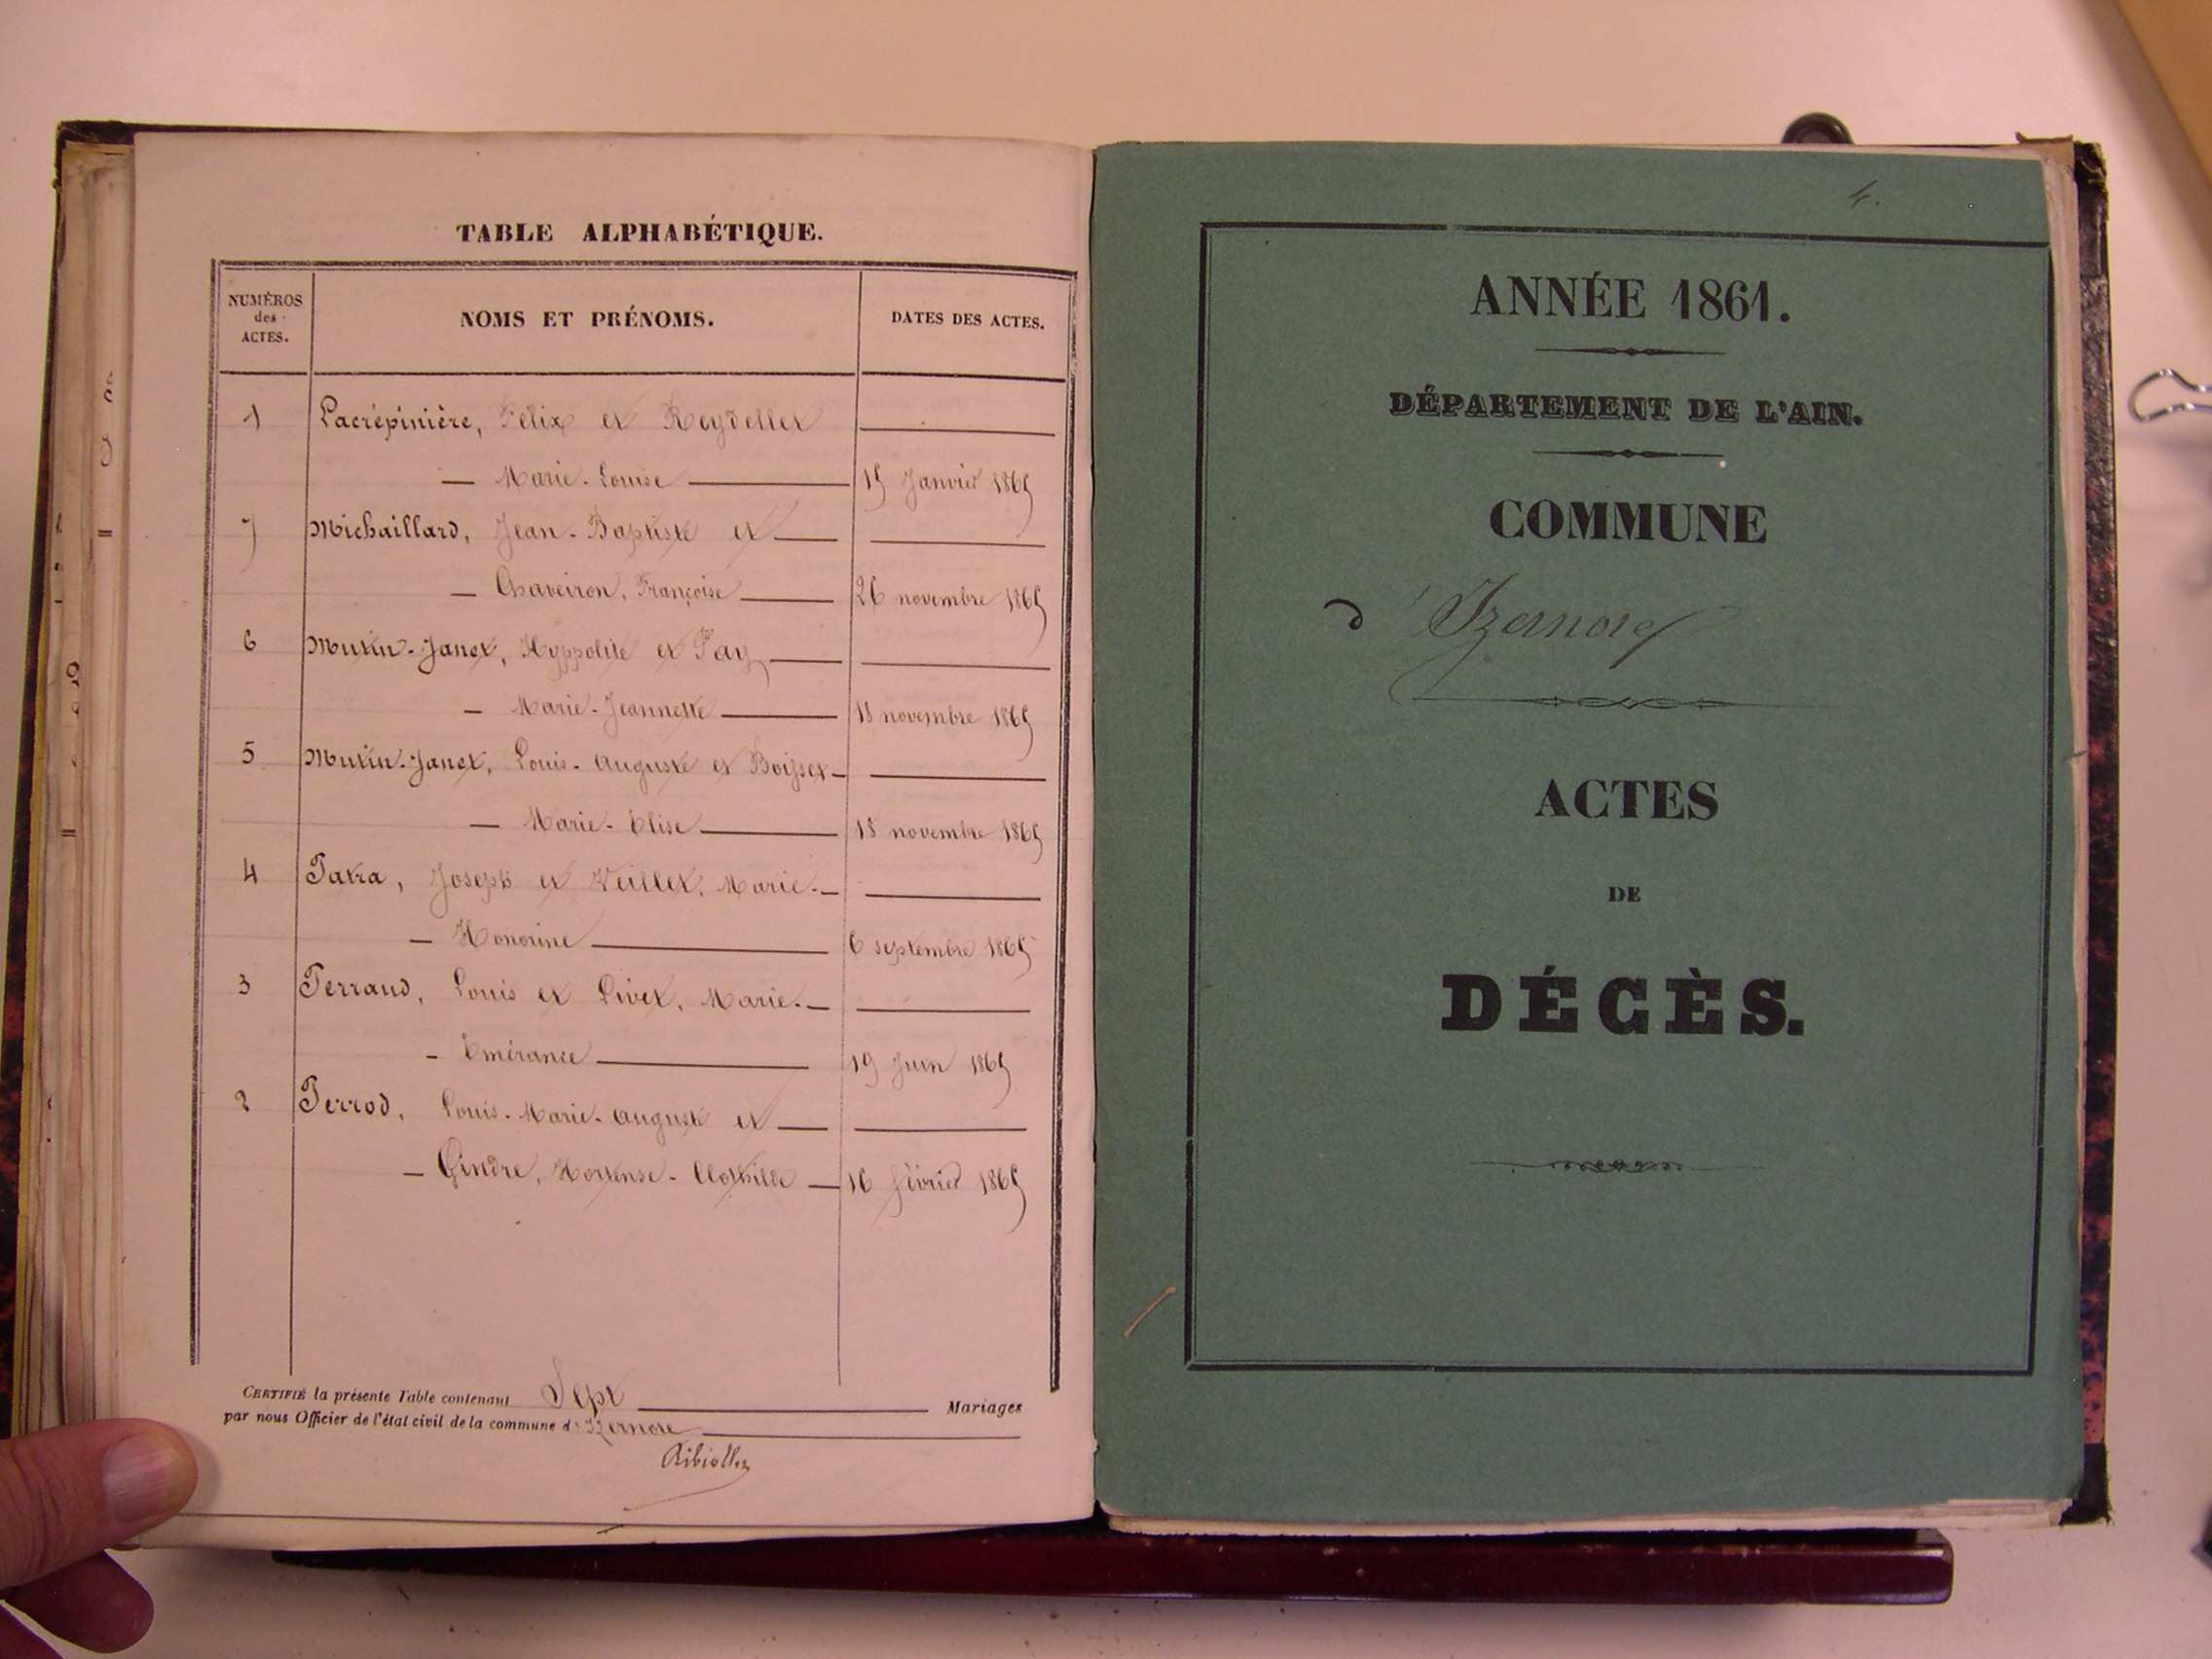 TABLE ALPHABÉTIQUE.
NUMÉROS
des
ACTES.
NOMS ET PRÉNOMS.
DATES DES ACTES.
1 Lacrépinière, Félix et Reydellet
— Marie-Louise — 15 Janvier 1865
7 Michaillard, Jean-Baptiste et —
— Chaveiron, Françoise — 26 novembre 1865
6 Mutin-Janet, Hyppolite et Pay —
— Marie-Jeannette — 18 novembre 1865
5 Mutin-Janet, Louis-Auguste et Boisset —
— Marie-Elise — 18 novembre 1865
4 Tatra, Joseph et Veillet, Marie-—
— Honorine — 6 septembre 1865
3 Perraud, Louis et Livet, Marie-—
- Emérance — 19 Juin 1865
2 Perrod, Louis-Marie-Auguste et —
— Gindre, Hortense-Clothilde — 16 février 1865
CERTIFIÉ la présente Table contenant Sept Mariages
par nous Officier de l'état civil de la commune d'Izernore
4.
ANNÉE 1861.
DÉPARTEMENT DE L'AIN.
COMMUNE
d'Izernore
ACTES
DE
DÉCÈS.